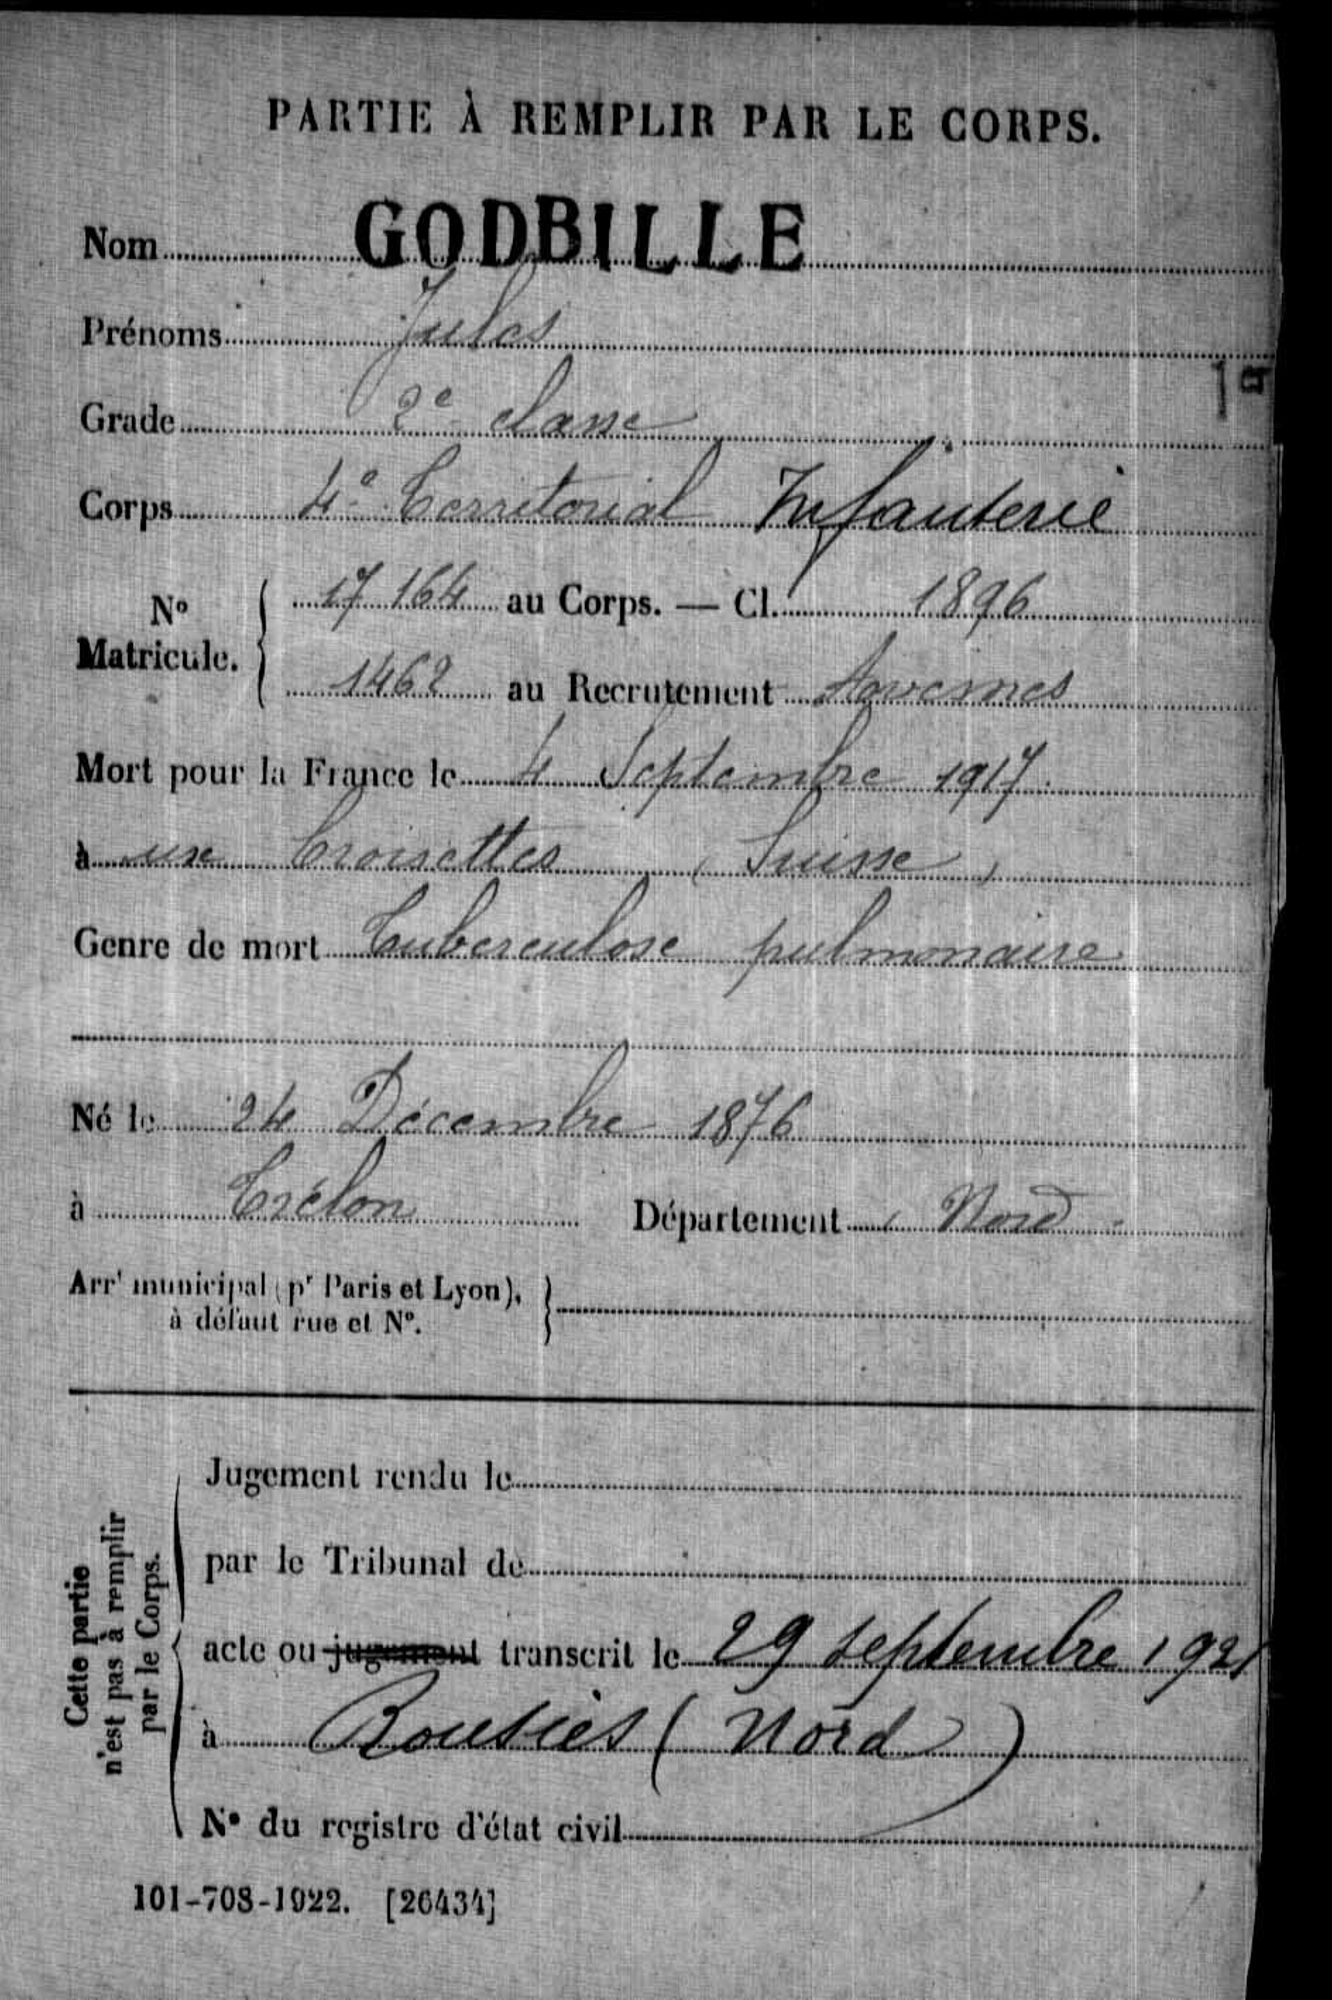 PARTIE À REMPLIR PAR LE CORPS.
Nom GODBILLE
Prénoms Jules
Grade 2e classe
1er
Corps 4e Territorial Infanterie
No Matricule. 17 164 au Corps. — Cl. 1896
1462 au Recrutement Avesnes
Mort pour la France le 4 Septembre 1917
à Croisettes (Suisse)
Genre de mort Tuberculose pulmonaire
Né le 24 Décembre 1876
à Trélon Département Nord
Arrt municipal (pr Paris et Lyon), à défaut rue et No.
Cette partie n'est pas à remplir par le Corps.
Jugement rendu le
par le Tribunal de
acte ou jugement transcrit le 29 septembre 1921
à Rousies (Nord)
No du registre d'état civil
101-708-1922. [26434]